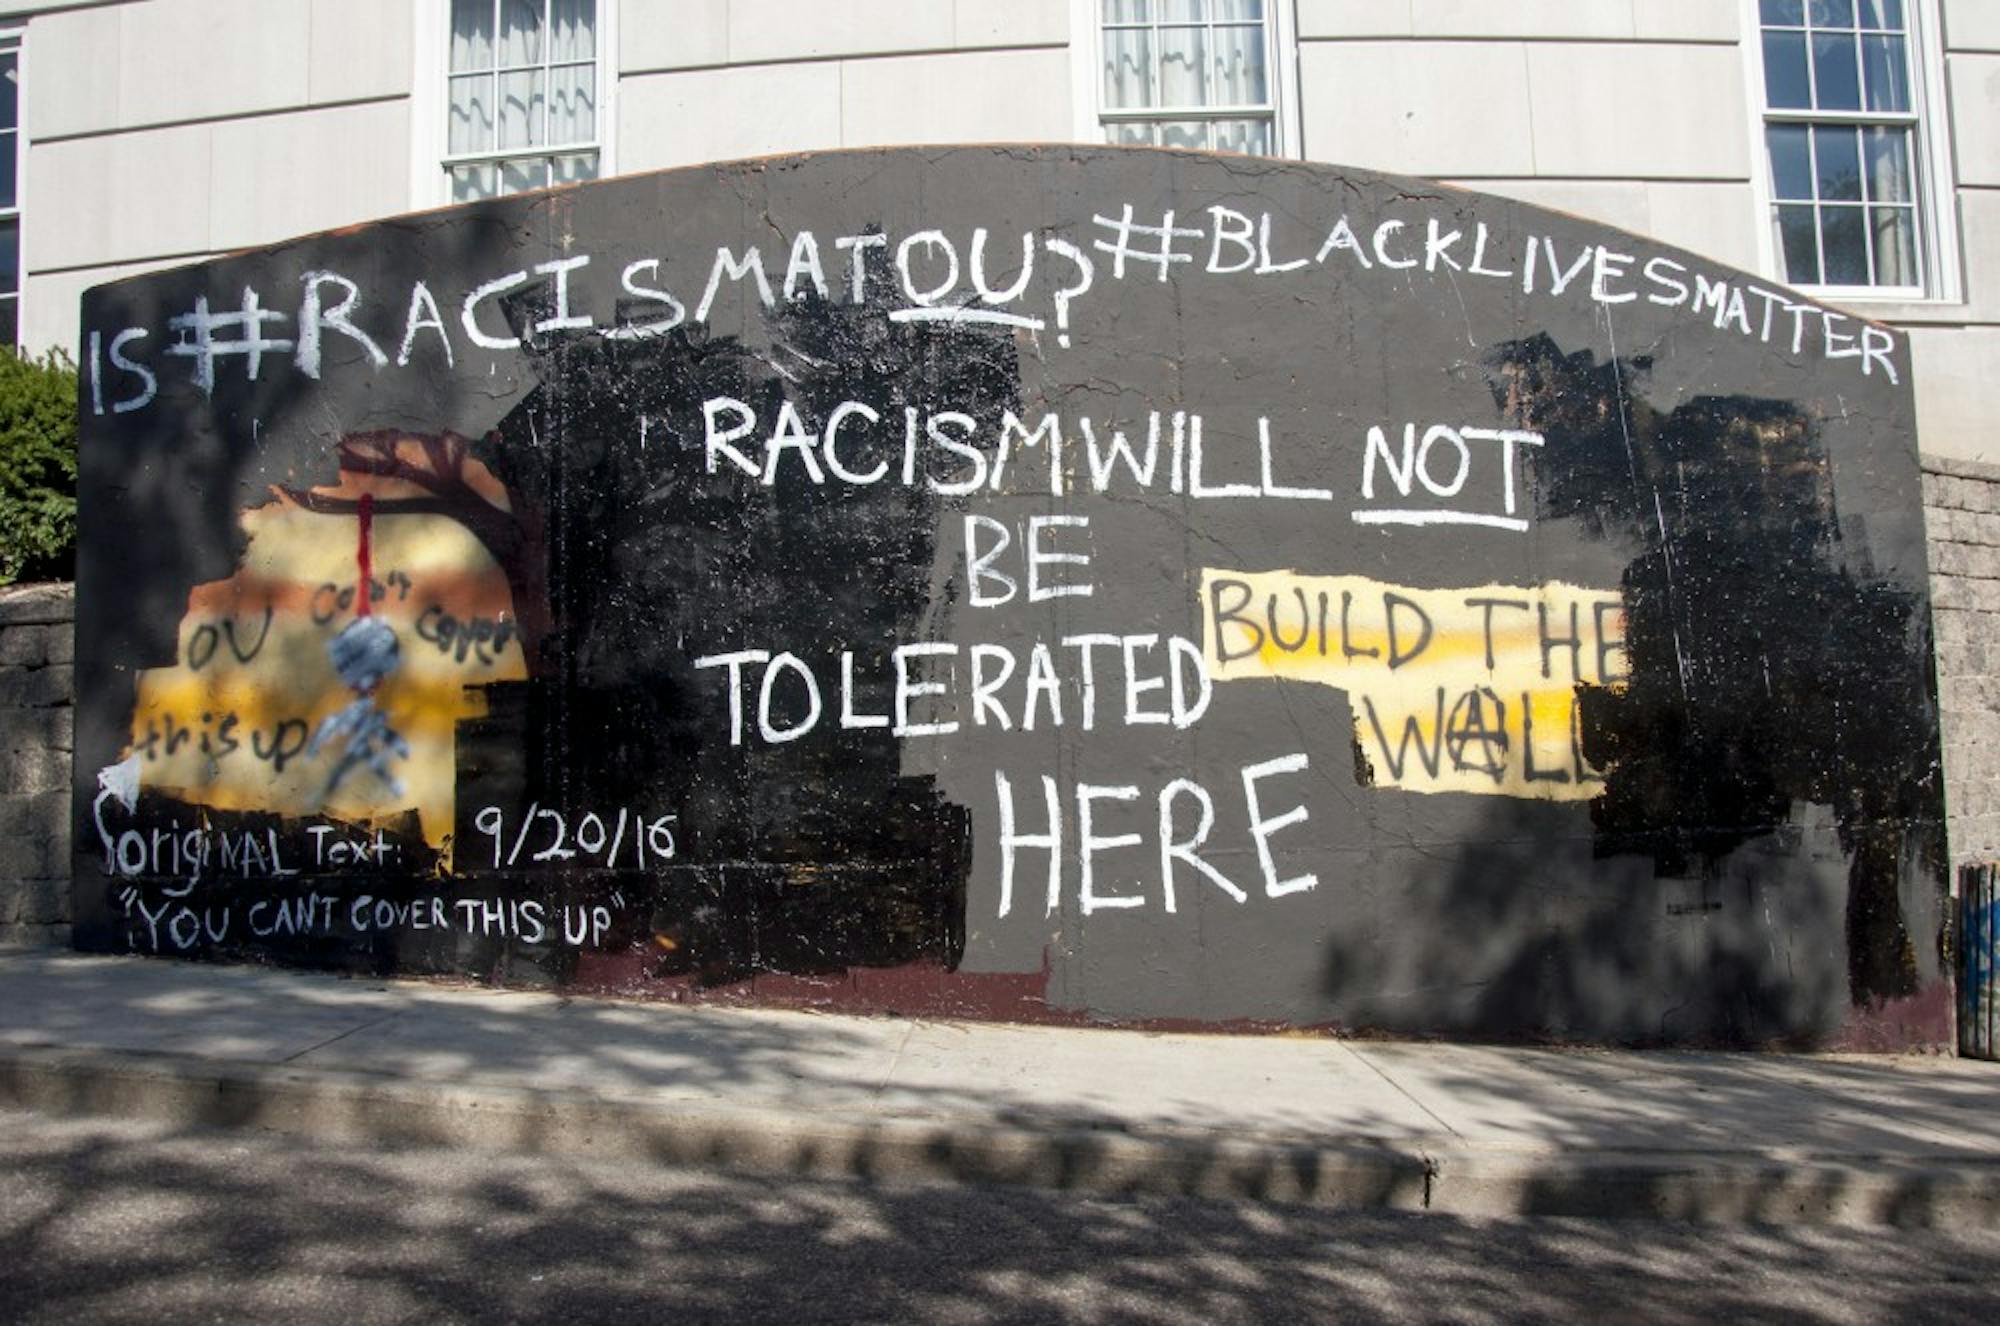 IS #RACISM AT OU? #BLACKLIVESMATTER
RACISM WILL NOT
BE
TOLERATED
HERE
BUILD THE
WALL
OU Can't cover
this up
original Text: 9/20/16
"YOU CAN'T COVER THIS UP"